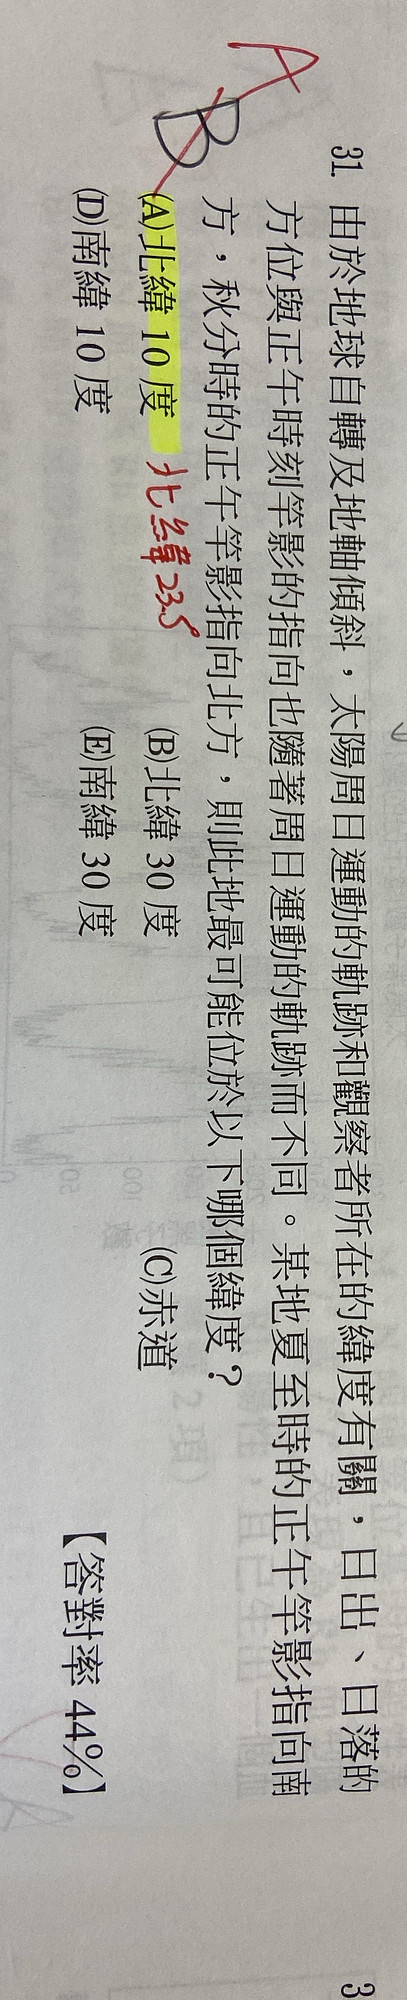 A
B
31. 由於地球自轉及地軸傾斜，太陽周日運動的軌跡和觀察者所在的緯度有關，日出、日落的
方位與正午時刻竿影的指向也隨著周日運動的軌跡而不同。某地夏至時的正午竿影指向南
方，秋分時的正午竿影指向北方，則此地最可能位於以下哪個緯度？
(A)北緯 10 度 北緯23.5° (B)北緯 30 度 (C)赤道
(D)南緯 10 度 (E)南緯 30 度 【答對率 44%】
3